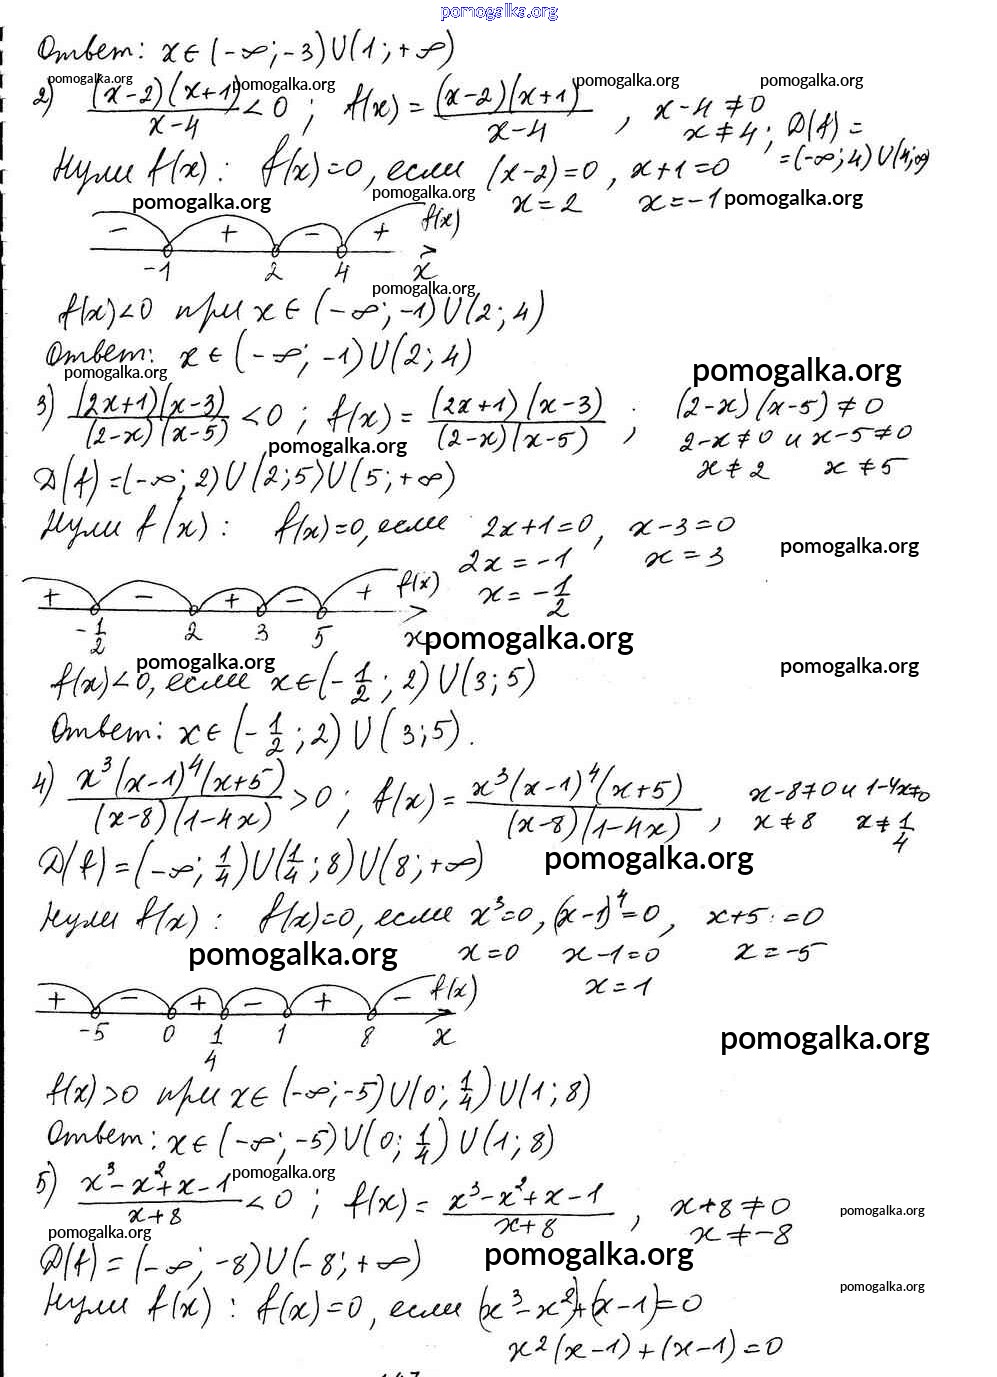 pomogalka.org
Ответ: x∈(-∞;-3)∪(1;+∞)
pomogalka.org pomogalka.org pomogalka.org pomogalka.org
2) (x-2)(x+1)/(x-4) < 0; f(x) = (x-2)(x+1)/(x-4), x-4≠0
x≠4; D(f) =
=(-∞;4)∪(4;∞)
Нули f(x): f(x)=0, если (x-2)=0, x+1=0
pomogalka.org pomogalka.org x=2 x=-1 pomogalka.org
- + - + f(x)
-1 2 4 x
pomogalka.org
f(x)<0 при x∈(-∞;-1)∪(2;4)
Ответ: x∈(-∞;-1)∪(2;4)
pomogalka.org pomogalka.org
3) (2x+1)(x-3)/((2-x)(x-5)) < 0; f(x) = (2x+1)(x-3)/((2-x)(x-5)), (2-x)(x-5)≠0
pomogalka.org 2-x≠0 и x-5≠0
x≠2 x≠5
D(f)=(-∞;2)∪(2;5)∪(5;+∞)
Нули f(x): f(x)=0, если 2x+1=0, x-3=0
2x=-1 x=3 pomogalka.org
x=-1/2
+ - + - + f(x)
-1/2 2 3 5 x
pomogalka.org
pomogalka.org pomogalka.org
f(x)<0, если x∈(-1/2;2)∪(3;5)
Ответ: x∈(-1/2;2)∪(3;5).
4) x³(x-1)⁴(x+5)/((x-8)(1-4x)) > 0; f(x) = x³(x-1)⁴(x+5)/((x-8)(1-4x)), x-8≠0 и 1-4x≠0
x≠8 x≠1/4
D(f)=(-∞;1/4)∪(1/4;8)∪(8;+∞) pomogalka.org
Нули f(x): f(x)=0, если x³=0, (x-1)⁴=0, x+5=0
pomogalka.org x=0 x-1=0 x=-5
x=1
+ - + - + - f(x)
-5 0 1/4 1 8 x
pomogalka.org
f(x)>0 при x∈(-∞;-5)∪(0;1/4)∪(1;8)
Ответ: x∈(-∞;-5)∪(0;1/4)∪(1;8)
pomogalka.org
5) x³-x²+x-1/(x+8) < 0; f(x) = x³-x²+x-1/(x+8), x+8≠0
x≠-8
pomogalka.org
pomogalka.org
D(f)=(-∞;-8)∪(-8;+∞) pomogalka.org
pomogalka.org
Нули f(x): f(x)=0, если (x³-x²)+(x-1)=0
x²(x-1)+(x-1)=0